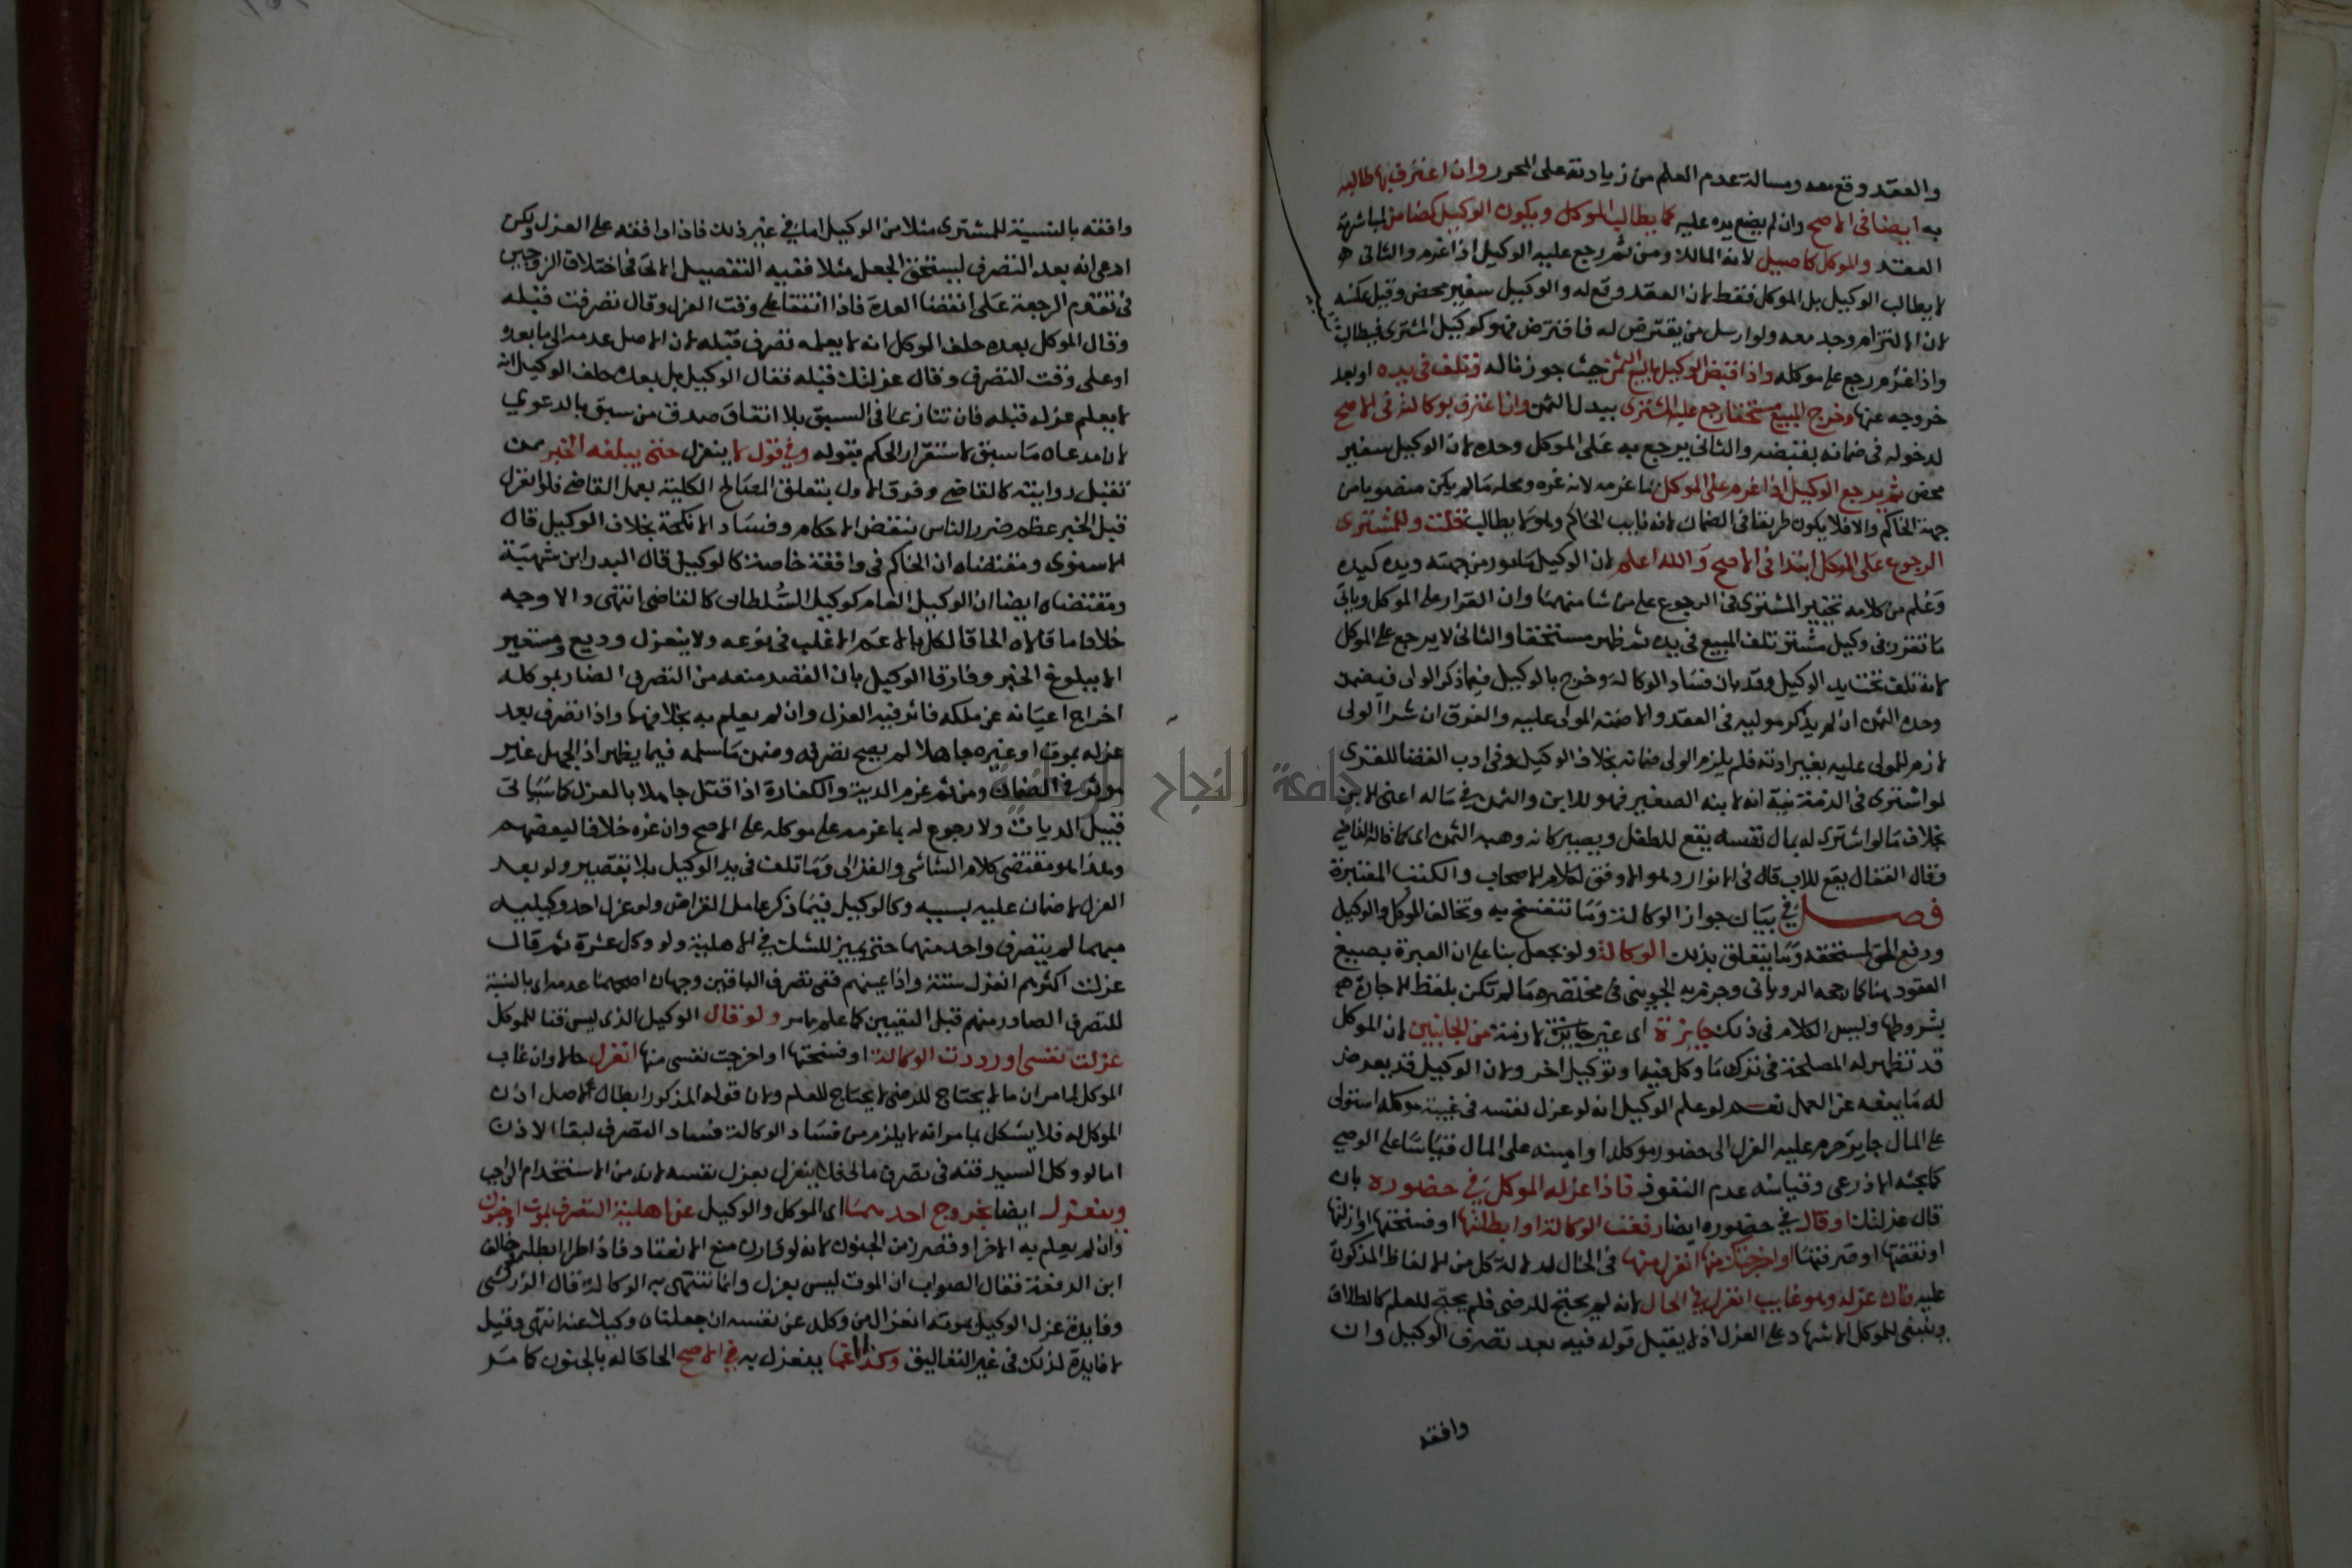 والعقد وقع معه ومسالة عدم العلم من زيادته على المحرر وان اعترف بها طالبه
به ايضا في الاصح وان لم يضع يده عليه كما يطالب الموكل ويكون الوكيل كضامن لمباشرته
العقد والموكل كاصيل لانه المالك ومن ثم رجع عليه الوكيل اذا غرم والثاني
لا يطالب الوكيل بل الموكل فقط لان العقد وقع له والوكيل سفير محض وقيل عكسه
لان الالتزام وجد معه ولو ارسل من يقترض له فاقترض فهو كوكيل المشتري فيطالب
واذا غرم رجع على موكله واذا قبض الوكيل بالبيع الثمن حيث جوزناله وتلف في يده او بعد
خروجه عنها وخرج المبيع مستحقا رجع عليه المشتري ببدل الثمن وان اعترف بوكالته في الاصح
لدخوله في ضمانه بقبضه والثاني يرجع به على الموكل وحده لان الوكيل سفير
محض ثم يرجع الوكيل اذا غرم على الموكل بما غرمه لانه غره ومحله ما لم يكن منصوبا من
جهة الحاكم والا فلا يكون طريقا في الضمان لانه نايب الحاكم وهو لا يطالب قلت وللمشتري
الرجوع على الموكل ابتدا في الاصح والله اعلم لان الوكيل مامور من جهته ويده كيده
وعلم من كلامه تخيير المشتري في الرجوع على من شا منهما وان القرار على الموكل وياتي
ما تقرر في وكيل مشتر تلف المبيع في يده ثم ظهر مستحقا والثاني لا يرجع على الموكل
لانه تلف تحت يد الوكيل وقد بان فساد الوكالة وخرج بالوكيل فيما ذكر الولي فيضمن
وحده الثمن ان لم يذكر موليه في العقد والا ضمنه المولى عليه والفرق ان شرا الولي
لازم للمولى عليه بغير اذنه فلم يلزم الولي ضمانه بخلاف الوكيل وفي ادب القضا للغزي
لو اشترى في الذمة نية انه لابنه الصغير فهو للابن والثمن في ماله اعني الابن
بخلاف ما لو اشترى له بمال نفسه يقع للطفل ويصير كانه وهبه الثمن اي كما قاله القاضي
وقال القفال يقع للاب قال في الانوار وهو الاوفق لكلام الاصحاب والكتب المعتبرة
فصل في بيان جواز الوكالة وما تنفسخ به وتخالف الموكل والوكيل
ودفع الحق لمستحقه وما يتعلق بذلك الوكالة ولو بجعل بنا على ان العبرة بصيغ
العقود هنا كما رجحه الروياني وجزم به الجويني في مختصره ما لم تكن بلفظ الاجارة
بشروطها وليس الكلام في ذلك جايزة اي غير لازمة من الجانبين لان الموكل
قد تظهر له المصلحة في ترك ما وكل فيه او توكيل اخر ولان الوكيل قد يعرض
له ما يمنعه عن العمل نعم لو علم الوكيل انه لو عزل نفسه في غيبة موكله استولى
على المال جاير حرم عليه العزل الى حضور موكله او امينه على المال قياسا على الوصي
كما بحثه الاذرعي وقياسه عدم النفوذ فاذا عزله الموكل في حضوره بان
قال عزلتك او قال في حضوره ايضا رفعت الوكالة او ابطلتها او فسختها او ازلتها
او نقضتها او صرفتها او اخرجتك منها انعزل منها في الحال لدلالة كل من الالفاظ المذكورة
عليه فان عزله وهو غايب انعزل في الحال لانه لم يحتج للرضى فلم يحتج للعلم كالطلاق
وينبغي للموكل الاشهاد على العزل اذ لا يقبل قوله فيه بعد تصرف الوكيل وان
وافقه
وافقه بالنسبة للمشتري مثلا من الوكيل اما في غير ذلك فاذا وافقه على العزل ولكن
ادعى انه بعد التصرف ليستحق الجعل مثلا ففيه التفصيل الاتي في اختلاف الزوجين
في تقدم الرجعة على انقضا العدة فاذا اتفقا على وقت العزل وقال تصرفت قبله
وقال الموكل بعده حلف الموكل انه لا يعلمه تصرف قبله لان الاصل عدمه الى ما بعده
او على وقت التصرف وقال عزلتك قبله فقال الوكيل بل بعده حلف الوكيل انه
لا يعلم عزله قبله فان تنازعا في السبق بلا اتفاق صدق من سبق بالدعوي
لان مدعاه ما سبق لاستقرار الحكم بقوله وفي قول لا ينعزل حتى يبلغه الخبر ممن
تقبل روايته كالقاضي وفرق الاول بتعلق المصالح الكلية بعمل القاضي فلو انعزل
قبل الخبر عظم ضرر الناس بنقض الاحكام وفساد الانكحة بخلاف الوكيل قال
الاسنوي ومقتضاه ان الحاكم في واقعة خاصة كالوكيل قال البدر ابن شهبة
ومقتضاه ايضا ان الوكيل العام كوكيل السلطان كالقاضي انتهى والاوجه
خلافا ما قالاه الحاقا لكل بالاعم الاغلب في نوعه ولا ينعزل وديع ومستعير
الا ببلوغ الخبر وفارقا الوكيل بان القصد منعه من التصرف الضار بموكله
اخراج اعيانه عن ملكه فاثر فيه العزل وان لم يعلم به بخلافهما واذا تصرف بعد
عزله بموت او غيره جاهلا لم يصح تصرفه وضمن ما سلمه فيما يظهر اذ الجهل غير
موثر في الضمان ومن ثم غرم الدية والكفارة اذا قتل جاهلا بالعزل كما سياتي
قبيل الديات ولا رجوع له بما غرمه على موكله على الاصح وان غره خلافا لبعضهم
وهذا هو مقتضى كلام الشاشي والغزالي وما تلف في يد الوكيل بلا تقصير ولو بعد
العزل لا ضمان عليه بسببه وكالوكيل فيما ذكر عامل القراض ولو عزل احد وكيليه
مبهما لم يتصرف واحد منهما حتى يميز للشك في الاهلية ولو وكل عشرة ثم قال
عزلت اكثرهم انعزل ستة واذا عينهم ففي تصرف الباقين وجهان اصحهما عدمه اي بالنسبة
للتصرف الصادر منهم قبل التعيين كما علم مامر ولو قال الوكيل الذي ليس قنا للموكل
عزلت نفسي او رددت الوكالة او فسختها او اخرجت نفسي منها انعزل حالا وان غاب
الموكل لما مر ان ما لا يحتاج للرضى لا يحتاج للعلم ولان قوله المذكور ابطال لاصل اذن
الموكل له فلا يشكل بما مر انه لا يلزم من فساد الوكالة فساد التصرف لبقا الاذن
اما لو وكل السيد قنه في تصرف مالي فلا ينعزل بعزل نفسه لانه من الاستخدام الواجب
وينعزل ايضا بخروج احدهما اي الموكل والوكيل عن اهلية التصرف بموت او جنون
وان لم يعلم به الاخر او قصر زمن الجنون لانه لو قارن منع الانعقاد فاذا طرا ابطله وخالف
ابن الرفعة فقال الصواب ان الموت ليس بعزل وانما تنتهي به الوكالة قال الزركشي
وفايدة عزل الوكيل بموته انعزال من وكله عن نفسه ان جعلناه وكيلا عنه انتهى وقيل
لا فايدة لذلك في غير التعاليق وكذا اغما ينعزل به في الاصح الحاقا له بالجنون كما مر
جامعة النجاح الوطنية